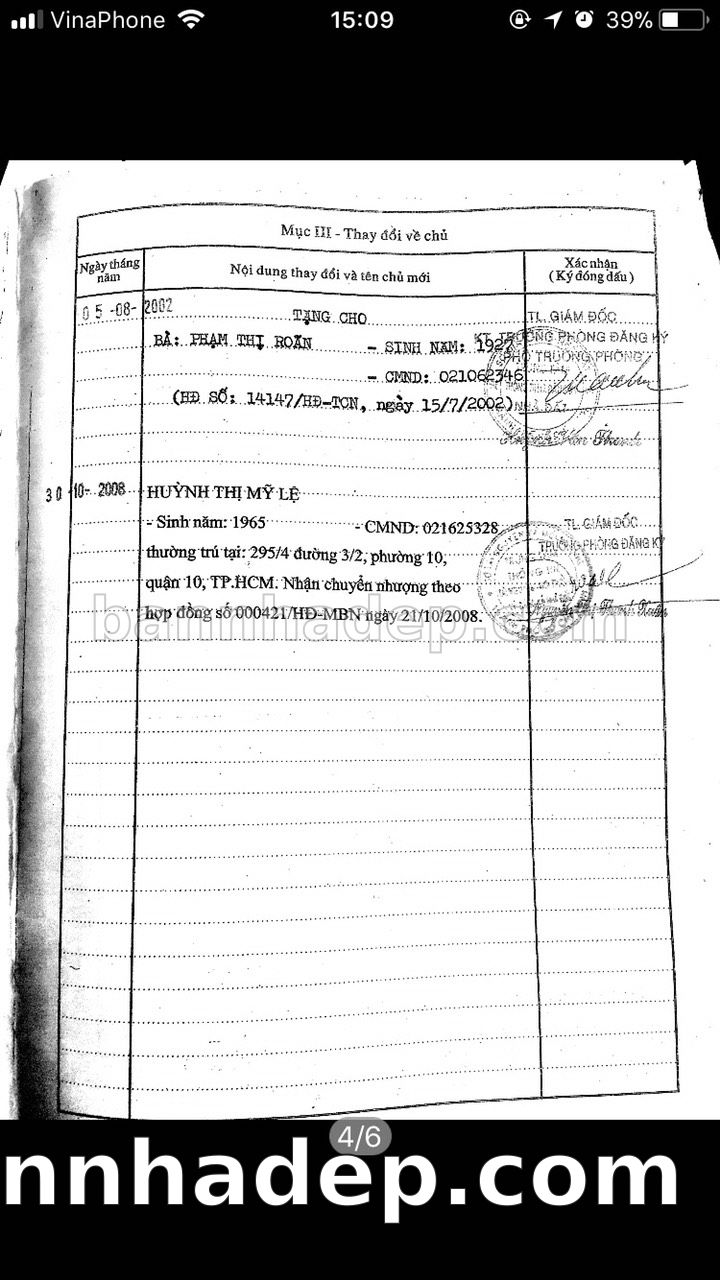 VinaPhone 15:09 39%
Mục III - Thay đổi về chủ
Ngày tháng năm
Nội dung thay đổi và tên chủ mới
Xác nhận
(Ký đóng dấu)
05-08-2002
TẶNG CHO
BÀ: PHẠM THỊ ROÃN - SINH NĂM: 1927
- CMND: 021062346
(HĐ SỐ: 14147/HĐ-TCN, ngày 15/7/2002)
TL. GIÁM ĐỐC
KT TRƯỞNG PHÒNG ĐĂNG KÝ
PHÓ TRƯỞNG PHÒNG
30-10-2008
HUỲNH THỊ MỸ LỆ
- Sinh năm: 1965 - CMND: 021625328
thường trú tại: 295/4 đường 3/2, phường 10,
quận 10, TP.HCM. Nhận chuyển nhượng theo
hợp đồng số 000421/HĐ-MBN ngày 21/10/2008.
TL. GIÁM ĐỐC
TRƯỞNG PHÒNG ĐĂNG KÝ
bannhadep.com
4/6
nnhadep.com